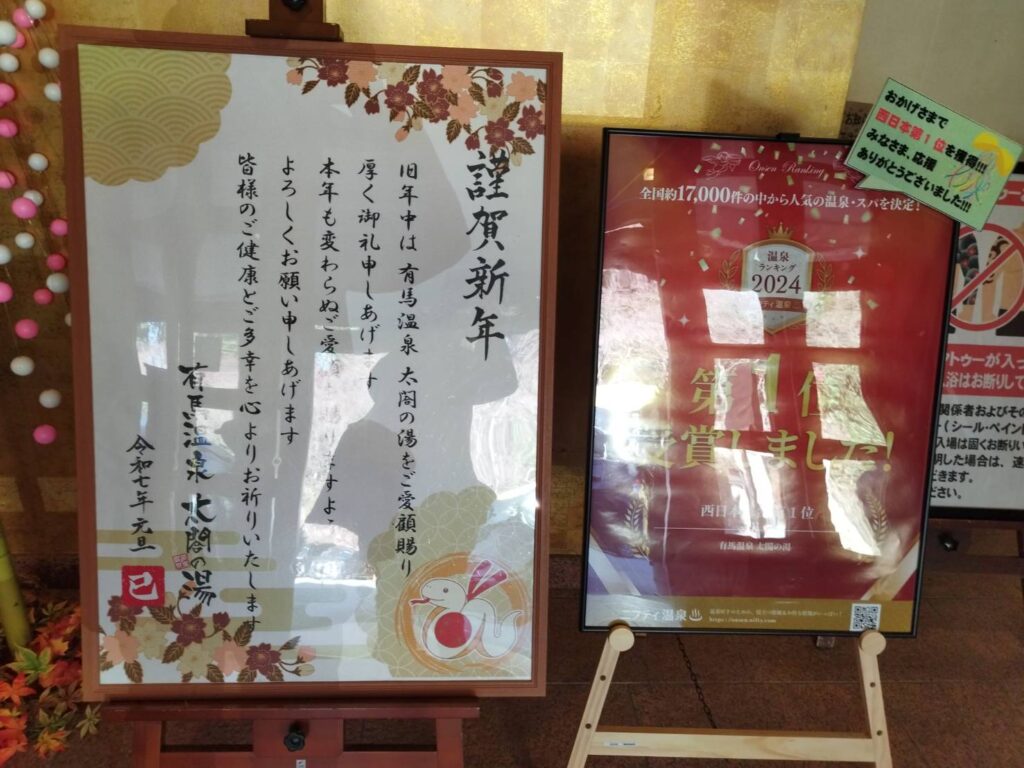 謹賀新年
旧年中は 有馬温泉 太閤の湯をご愛顧賜り
厚く御礼申しあげます
本年も変わらぬご愛
よろしくお願い申しあげます
皆様のご健康とご多幸を心よりお祈りいたします
有馬温泉 太閤の湯
令和七年 元旦
巳
おかげさまで
西日本第1位を獲得!!!
みなさま、応援
ありがとうございました!!!
Onsen Ranking
全国約17,000件の中から人気の温泉・スパを決定!
温泉
ランキング
2024
ティ温泉
第1位
受賞しました!
西日本 1位
有馬温泉 太閤の湯
ニフティ温泉
https://onsen.nifty.com
トゥーが入っ
浴はお断りして
関係者およびその
(シール・ペイント
入場は固くお断りい
明した場合は、速
だきます。
ださい。